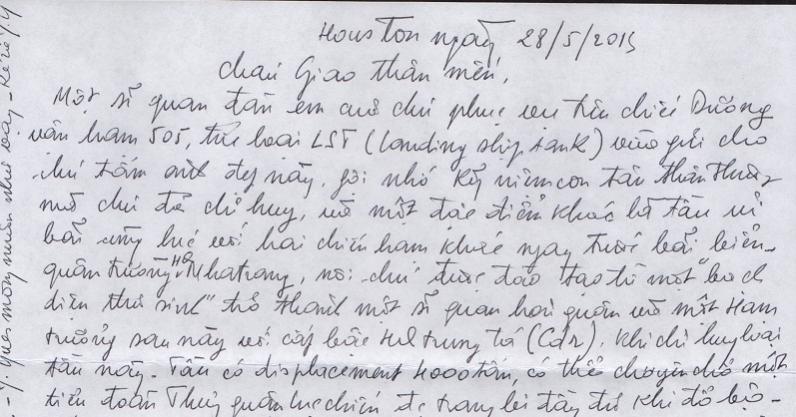 Houston ngày 28/5/2015
cháu Giao thân mến,
Một sĩ quan đàn em cuả chú phục vụ trên chiếc Dương
vận hạm 505, thuộc loại LST (landing ship tank) vừa gửi cho
chú tấm ảnh đẹp này, gợi nhớ kỷ niệm con tàu thân thương
mà chú đã chỉ huy, và một đặc điểm khác là tàu
bãi cùng lúc với hai chiến hạm khác ngay trước bãi biển
quân trường HQ Nhatrang, nơi chú được đào tạo từ một "bạch
diện thư sinh" trở thành một sĩ quan hải quân và một Hạm
trưởng sau này với cấp bậc HQ trung tá (Cdr), khi chỉ huy loại
tàu này. Tàu có displacement 4000 tấn, có thể chuyên chở một
tiểu đoàn Thủy quân lục chiến trang bị đầy đủ khi đổ bộ-